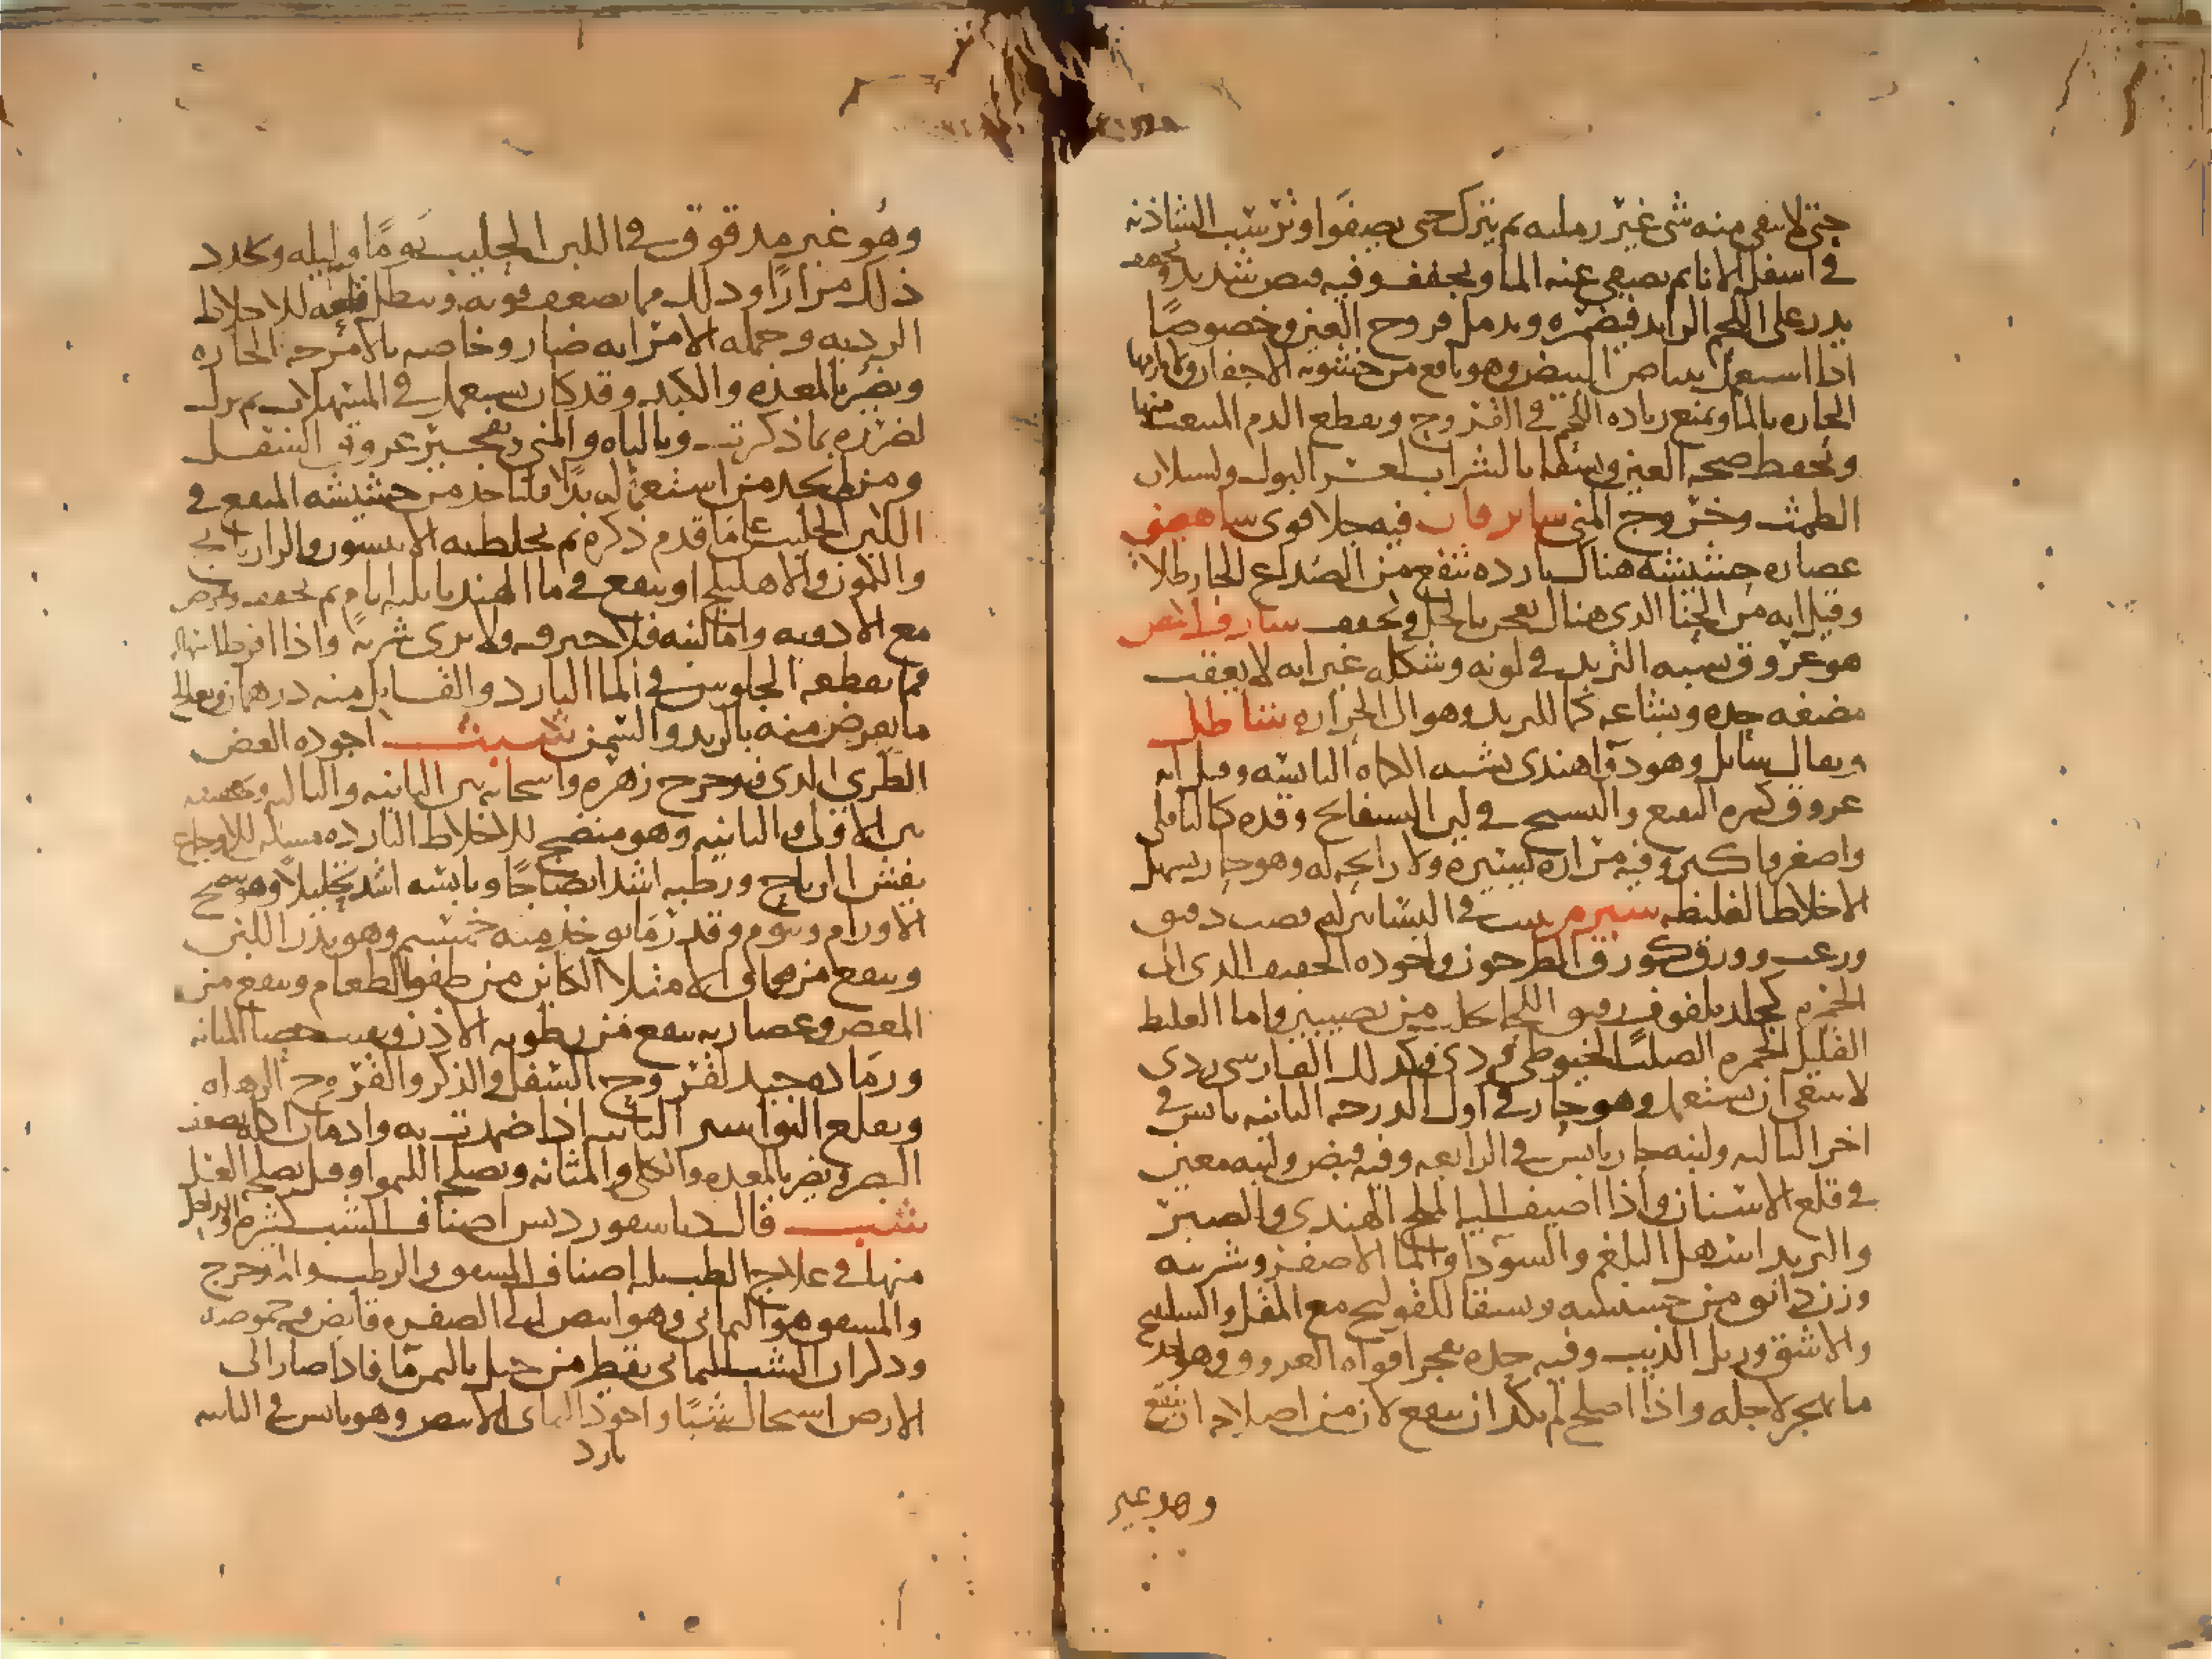 حتى لا يبقى منه شي غير رمليه ثم يترك حتى يصفوا وترسب الشاذنه
في اسفل الانا ثم يصفى عنه الما ويجفف وفيه قبض شديد وتجفيف
يدر على اللحم الزايد فيضمره ويدمل قروح العين وخصوصًا
اذا استعمل ببياض البيض وهو نافع من خشونه الاجفان واورامها
الحاره بالما ويمنع زياده اللحم في القروح ويقطع الدم المنبعث منها
ويحفظ صحه العين ويسقا بالشراب لعسر البول ولسيلان
الطمث وخروج المني سابرقان فيه جلا قوى ساهصفر
عصاره حشيشه هنالك بارده تنفع من الصداع الحار طلا
وقيل انه من الحنا الذى هنال يعجن بالخل ويجفف
هو عروق تشبه التربد في لونه وشكله غير انه لا يعقب
مضغه حده وبشاعه كما للتربد وهو الى الحراره شاطل
ويقال ساتل وهو دوا هندى يشبه الكماه اليابسه وقيل انه
عروق كثيره
واصغر واكبر وفيه مراره يسيره ولا رايحه له وهو حار يسهل
الاخلاط الغليظه شبرم ينبت في البساتين له قصب دقيق
وزغب وورق كورق الطرخون واجوده الخفيف الذى الى
الحمره كجلد ملفوف رقيق اللحا كل من نصيبين واما الغليظ
القليل الحمره الصلب الخيوطى فردى وكذلك الفارسى ردى
لا ينبغى ان يستعمل وهو حار في اول الدرجه الثانيه يابس في
اخر الثالثه ولبنه حار يابس في الرابعه وفيه قبض ولبنه معين
في قلع الاسنان واذا اضيف اليه الملح الهندى والصبر
والتربد اسهل البلغم والسودا والما الاصفر وشربه
وزن دانق من حشيشه ويسقا للقولنج مع المقل والسكبينج
والاشق وزبل الذيب وفيه حده يفجر افواه العروق وهو احد
ما يهجر لاجله واذا اصلح لم يكد ان ينفع لان من اصلاحه ان ينقع
وهو غير
وهو غير مدقوق في اللبن الحليب يومًا وليله ويجدد
ذلك مرارًا وذلك مما يضعف قوته ويبطل فعله للاخلاط
الرديه وجمله الامر انه ضار وخاصه بالامزجه الحاره
ويضر بالمعده والكبد وقد كان يستعمل في المسهلات ثم ترك
لضرره بما ذكرت وبالباه والمنى وتفجير عروق السفل
ومن لم يجد من استعماله بدًا فلياخذ من حشيشه المنقع في
اللبن الحليب على ما قدم ذكره ثم يخلط به الانيسون والرازيانج
والكمون والاهليلج او ينقع في ما الهندبا ثلثه ايام ثم يجفف ويقرص
مع الادويه واما لبنه فلا خير فيه ولا يرى شربه واذا افرط اسهاله
فما يقطعه الجلوس في الما البارد والقاتل منه درهمان ويعالج
ما يعرض منه بالزبد والسمن شبث اجوده الغض
الطرى الذى قد خرج زهره واسخانه بين الثانيه والثالثه
بين الاولى والثانيه وهو منضج للاخلاط البارده مسكن للاوجاع
يفش الرياح ورطبه اشد انضاجًا ويابسه اشد تحليلا وهو ينضج
الاورام وينوم وهو يدر اللبن
وينفع من فواق الامتلا الكاين من طفو الطعام وينفع من
المغص وعصارته تنفع من رطوبه الاذن حصا المثانه
ورماده جيد لقروح السفل والذكر والقروح الرهله
ويقلع البواسير الناتيه اذا ضمدت به وادمان اكله يضعف
البصر ويضر بالمعده والكلى والمثانه ويصلحه الليموا وقيل يصلحه العسل
شب قال دياسقوريدس اصناف الشب كثيره والداخل
منها في علاج الطب ثلثه اصناف المشقق والرطب والمدحرج
والمشقق هو اليمانى وهو ابيض الى الصفره قابض فيه حموضه
وذكر ان الشب اليمانى يقطر من جبل باليمن ما فاذا صار الى
الارض استحال شبًا واجوده اليمانى الابيض وهو يابس في الثانيه
بارد